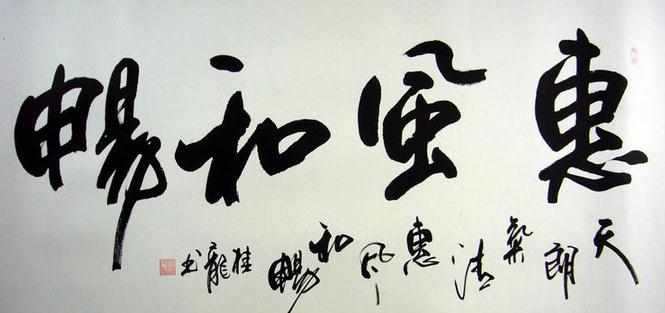 惠風和暢
天朗氣清惠風和暢
桂龍书